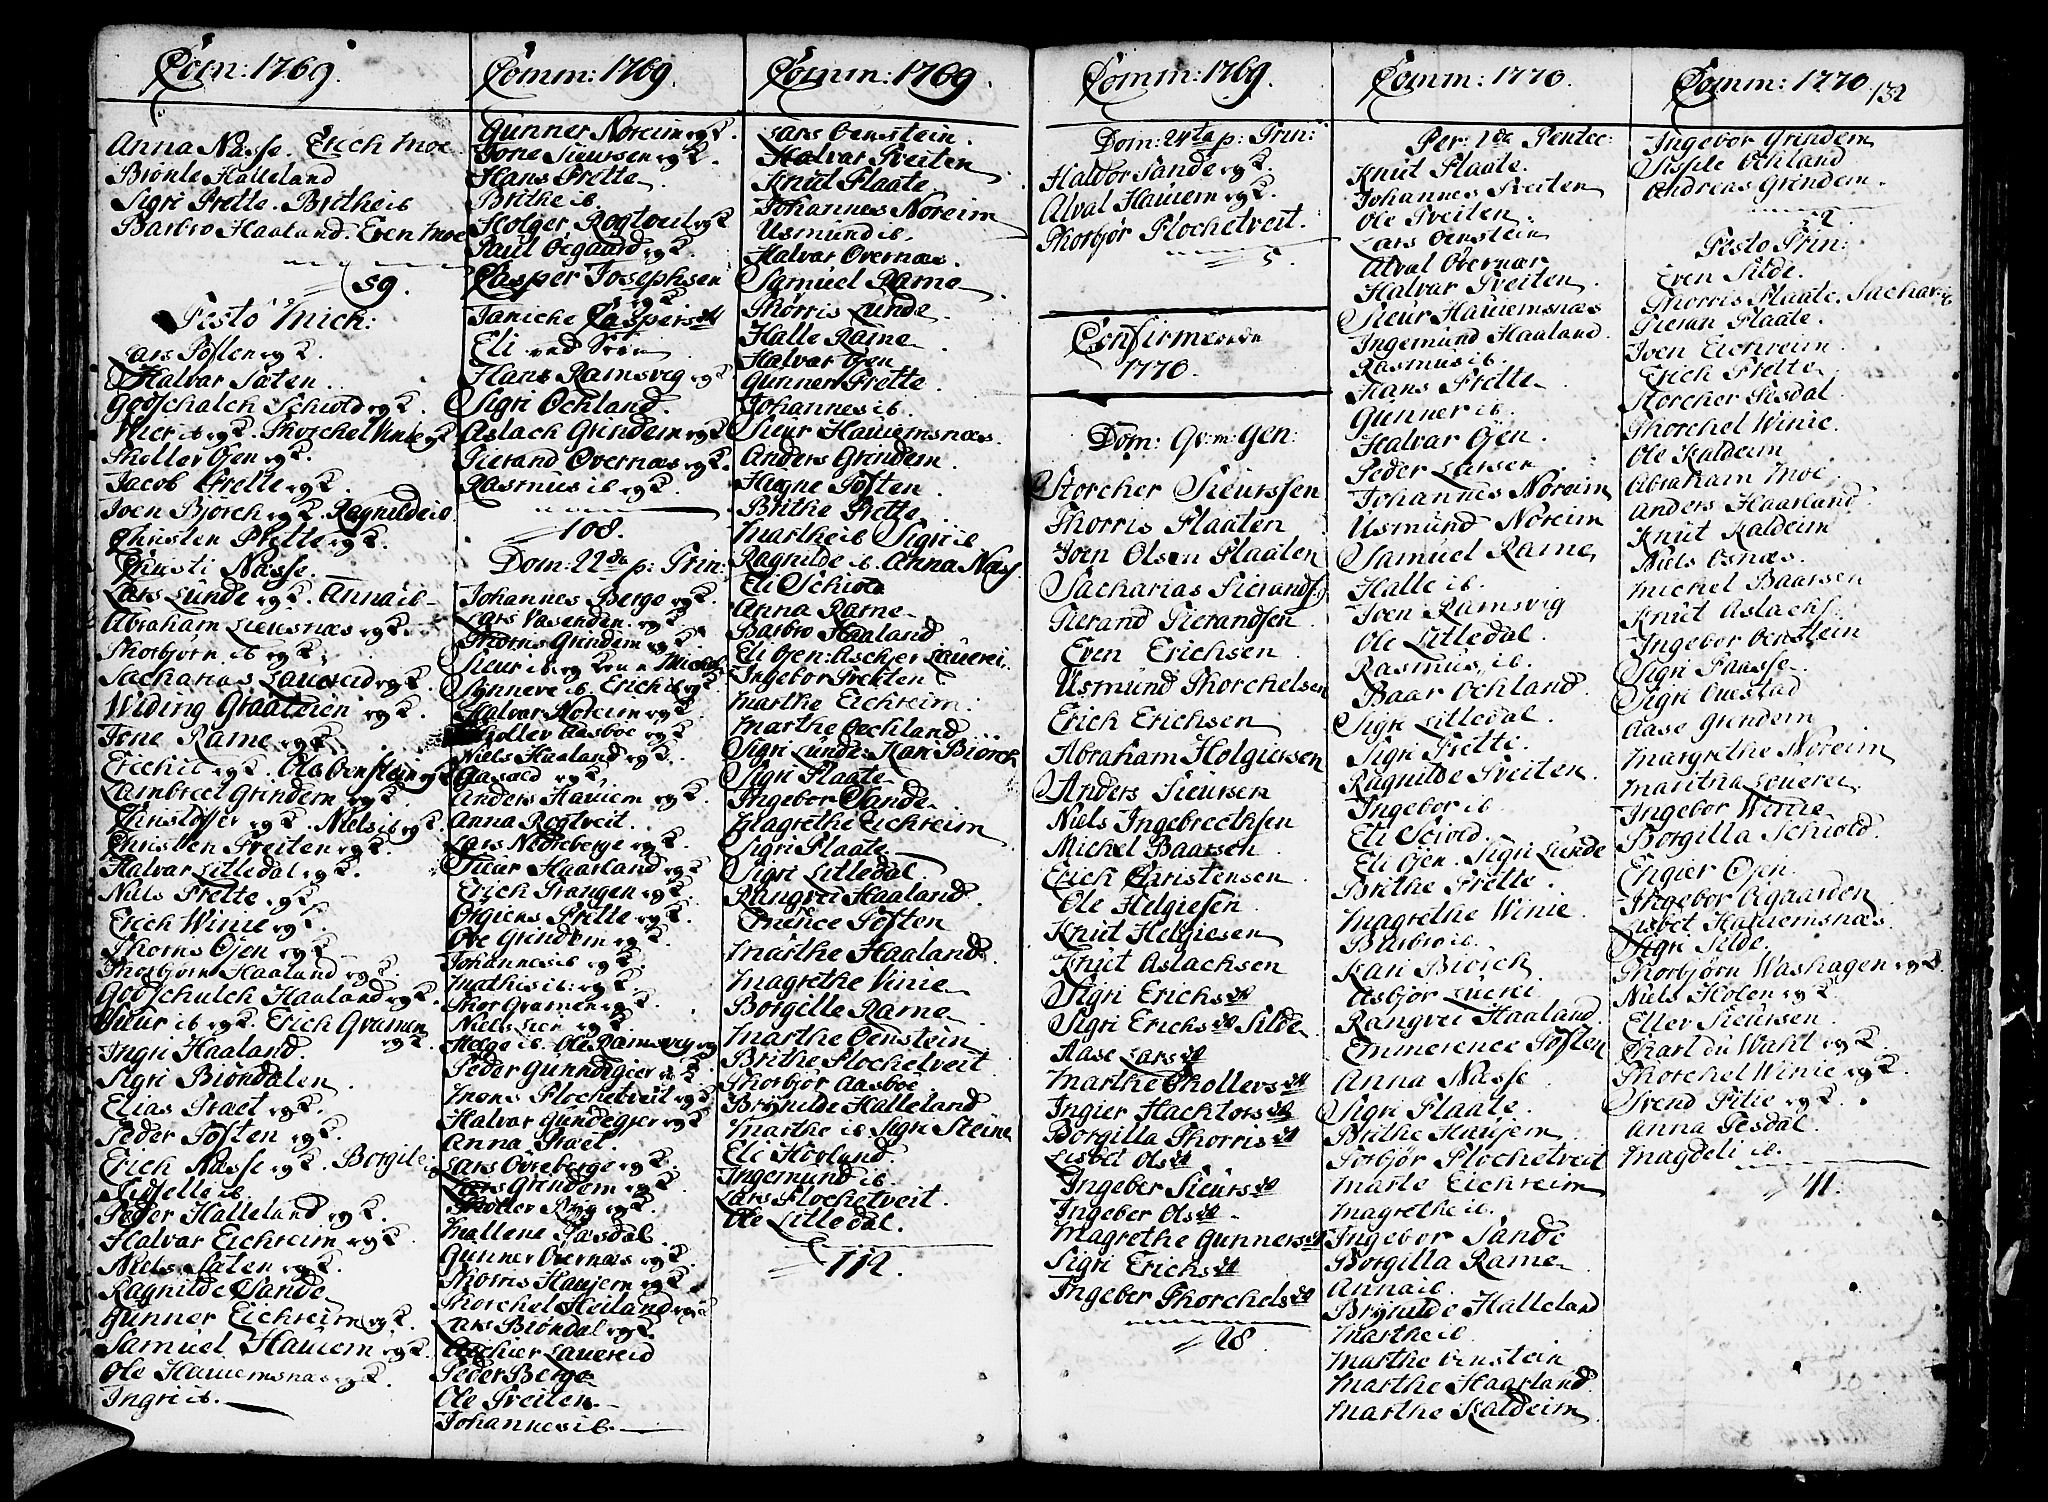 Com: 1769.
Anna Nasse. Erich Moe
Brönle Halleland
Sigri Frette. Brithe ib
Barbro Haaland. Even Moe
59.
Festo Mich:
Lars Posten egk.
Halvar Sæten.
Godschalch Schiold egk.
ib egk. Thorchel Vinie egk
Tholler Öjen egk.
Jacob Frette egk.
Joen Björch egk. Ragnilde ib
Christen Frette egk.
Christi Nasse.
Lars Lunde egk. Anna ib
Abraham Lieusnæs egk.
Thorbjörn ib egk.
Sacharias Lauereid egk.
Widing Graatdien egk.
Tone Rame egk.
Erich ib egk. Ola Öenstein egk
Lambrect Grindem egk.
Christoffer egk. Niels ib egk.
Christen Tveiten egk.
Halvar Litledal egk.
Niels Frette egk.
Erich Winie egk.
Thorris Öjen egk.
Thorbjörn Haaland egk.
Godschalch Haaland egk.
Sieur ib egk. Erich Gramen
egk.
Ingri Haaland.
Sigri Biöndalen
Elias Traet egk.
Peder Posten egk.
Erich Nasse egk. Borgile
ib
Peder Halleland egk.
Halvar Eichreim egk.
Niels Sæten egk.
Ragnilde Sande
Gunner Eichreim egk.
Samuel Hauiem egk.
Ole Hauiemsnæs egk.
Ingri ib.
Comm: 1769.
Gunner Noreim egk.
Tore Sieursen egk.
Hans Frette
Brithe ib.
Holger Rogtveit egk
Paul Öegaard egk.
Casper Josephsen
egk
Janiche Caspersdt
Eli ved Söen
Hans Ramsvig egk
Sigri Ochland.
Aslach Grindem egk
Tierand Overnæs egk.
Rasmus ib egk.
108.
Dom: 22de p: Trin:
Johannes Berge egk.
Lars Vasenden egk.
Thorris Grindem egk.
Sieur ib egk
Synneve ib. Erich ib egk
Halvar Noreim egk.
Tholler Aasboe egk
Niels Haaland egk.
Aasald egk.
Anders Hauiem egk.
Anna Rogtveit.
Lars Nedreberge egk.
Sieur Haarland egk.
Erich Trangen egk.
Frette egk.
Ove Grindem egk.
Johannes ib egk.
Mathis ib: egk.
Thor Gramen egk.
Niels Lien egk.
Helge ib. Ole Ramsvig egk
Peder Gunndegier egk.
Mons Plochetveit egk
Halvar Gundegier egk
Anna Traet.
Lars Övreberge egk.
Lars Grindem egk.
Tholler Ryg egk.
Mallene Fasdal.
Gunner Overnæs egk.
Thorris Haujem egk.
Thorchel Heiland egk
Lars Biöndal egk.
Aschier Lauereid
Peder Berge
Ole Tveiten
Johannes ib.
Comm: 1769.
Lars Oenstein.
Halvar Tveiten
Knut Flaate
Johannes Noreim
Usmund ib.
Halvar Overnæs.
Samuel Rame
Thorris Lunde.
Halle Rame
Halvar Öjen
Gunner Frette
Johannes ib.
Sieur Hauiemsnæs.
Anders Grindem
Hogne Posten
Brithe Frette
Marthe ib Sigri ib
Ragnilde ib. Anna Nass.
Eli Schiold
Anna Rame
Barbro Haaland
Eli Öjen: Aschier Lauerei.
Ingebor Tveiten
Marthe Eichreim:
Marthe Oechland
Sigri Lunde: Kari Biörch
Sigri Flaate
Ingebor Sande.
Magrethe Eichreim
Sigri Flaate
Sigri Litledal.
Rangvei Haaland
Emence Posten
Marthe Haaland.
Magrethe Vinie
Borgille Rame
Marthe Oenstein
Brithe Plochetveit
Thorbjör Aasboe
Brynilde Halleland
Marthe ib Sigri Steine
Eli Hovland.
Ingemund ib.
Lars Plochetveit.
Ole Litledal.
112.
Comm: 1769.
Dom: 24ta p: Trin:
Haldor Sande egk.
Alval Hauiem egk.
Thorbjör Plochetveit.
5.
Confirmerede
1770.
Dom: Qv:m: Gen:
Storcher Sieurssen
Thorris Flaaten
Joen Olsen Flaaten
Sacharias Tierands.
Tierand Tierandsen
Even Erichsen
Usmund Thorchelsen
Erich Erichsen
Abraham Holgiersen
Anders Sieursen
Niels Ingebrecthsen
Michel Baarsen
Erich Christensen
Ole Helgiesen
Knut Helgiesen
Knut Aslachsen
Sigri Erichsdt
Sigri Erichsdt Silde
Aase Larsdt
Marthe Thollersdt
Ingier Hachtorsdt
Borgilla Thorrisdt
Lisbet Olsdt
Ingeber Sieursdt
Ingeber Olsdt
Magrethe Gunnersdt
Sigri Erichsdt
Ingeber Thorchelsdt
28.
Comm: 1770.
Fer: 1de Pentec:
Knut Flaate.
Johannes Tveiten
Ole Tveiten.
Lars Oenstein
Alval Overnæs
Halvar Tveiten
Sieur Hauiemsnæs
Ingemund Haaland.
Rasmus ib.
Hans Frette
Gunner ib.
Halvar Öjen.
Peder Larsen
Johannes Noreim
Usmund Noreim
Samuel Rame
Halle ib.
Joen Ramsvig
Ole Litledal.
Rasmus ib.
Baar Ochland.
Sigri Litledal.
Sigri Frette.
Ragnilde Tveiten.
Ingebor ib.
Eli Sciold.
Eli Öjen. Sigri Lunde
Brithe Frette.
Magrethe Winie.
Barbro ib.
Kari Biörch
Asbjör Luerei
Rangvei Haaland.
Emmerence Posten
Anna Nasse.
Sigri Flaate.
Brithe Haujem
Torbjör Plochetveit
Marte Eichreim
Magrethe ib.
Ingebor Sande
Borgilla Rame
Anna ib.
Brynilde Halleland
Marthe ib.
Marthe Oenstein
Marthe Haarland.
Marthe Kaldeim
Comm: 1770. 132
Ingebor Grindem
Sissele Ochland
Andreas Grindem.
52.
Festo Trin:
Even Silde.
Thorris Flaate. Sachar. ib
Tieran Flaate.
Joen Eichreim.
Erich Frette.
Storcher Fisdal
Thorchel Winie.
Ole Kaldeim
Abraham Moe
Anders Haarland
Knut Kaldeim
Niels Osnæs.
Michel Baarsen
Knut Aslachs.
Ingebor Oenstein
Sigri Faasse.
Sigri Ouestad
Aase Grindem
Margrethe Noreim
Maritha Louerei.
Ingebor Winie
Borgilla Schiold.
Engier Öjen.
Ingebor Ogaarden
Lisbet Hauiemsnæs.
Sigri Silde.
Thorbjörn Washagen egk
Niels Holen egk.
Eller Sieursen
Charl du Waht egk.
Thorchel Winie egk.
Svend Fitie egk.
Anna Fesdal.
Magdeli ib.
41.